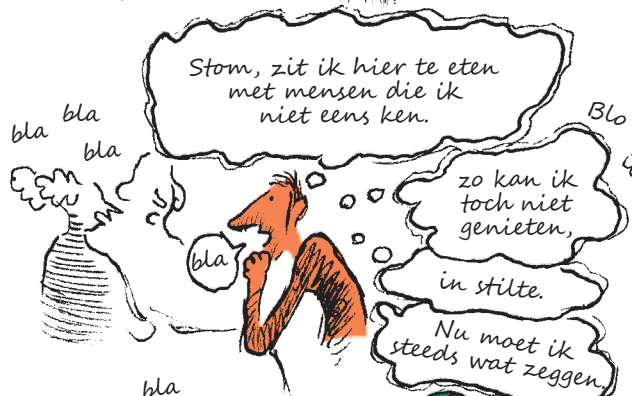 Stom, zit ik hier te eten
met mensen die ik
niet eens ken.
bla
bla
bla
bla
zo kan ik
toch niet
genieten,
in stilte.
Nu moet ik
steeds wat zeggen,
bla